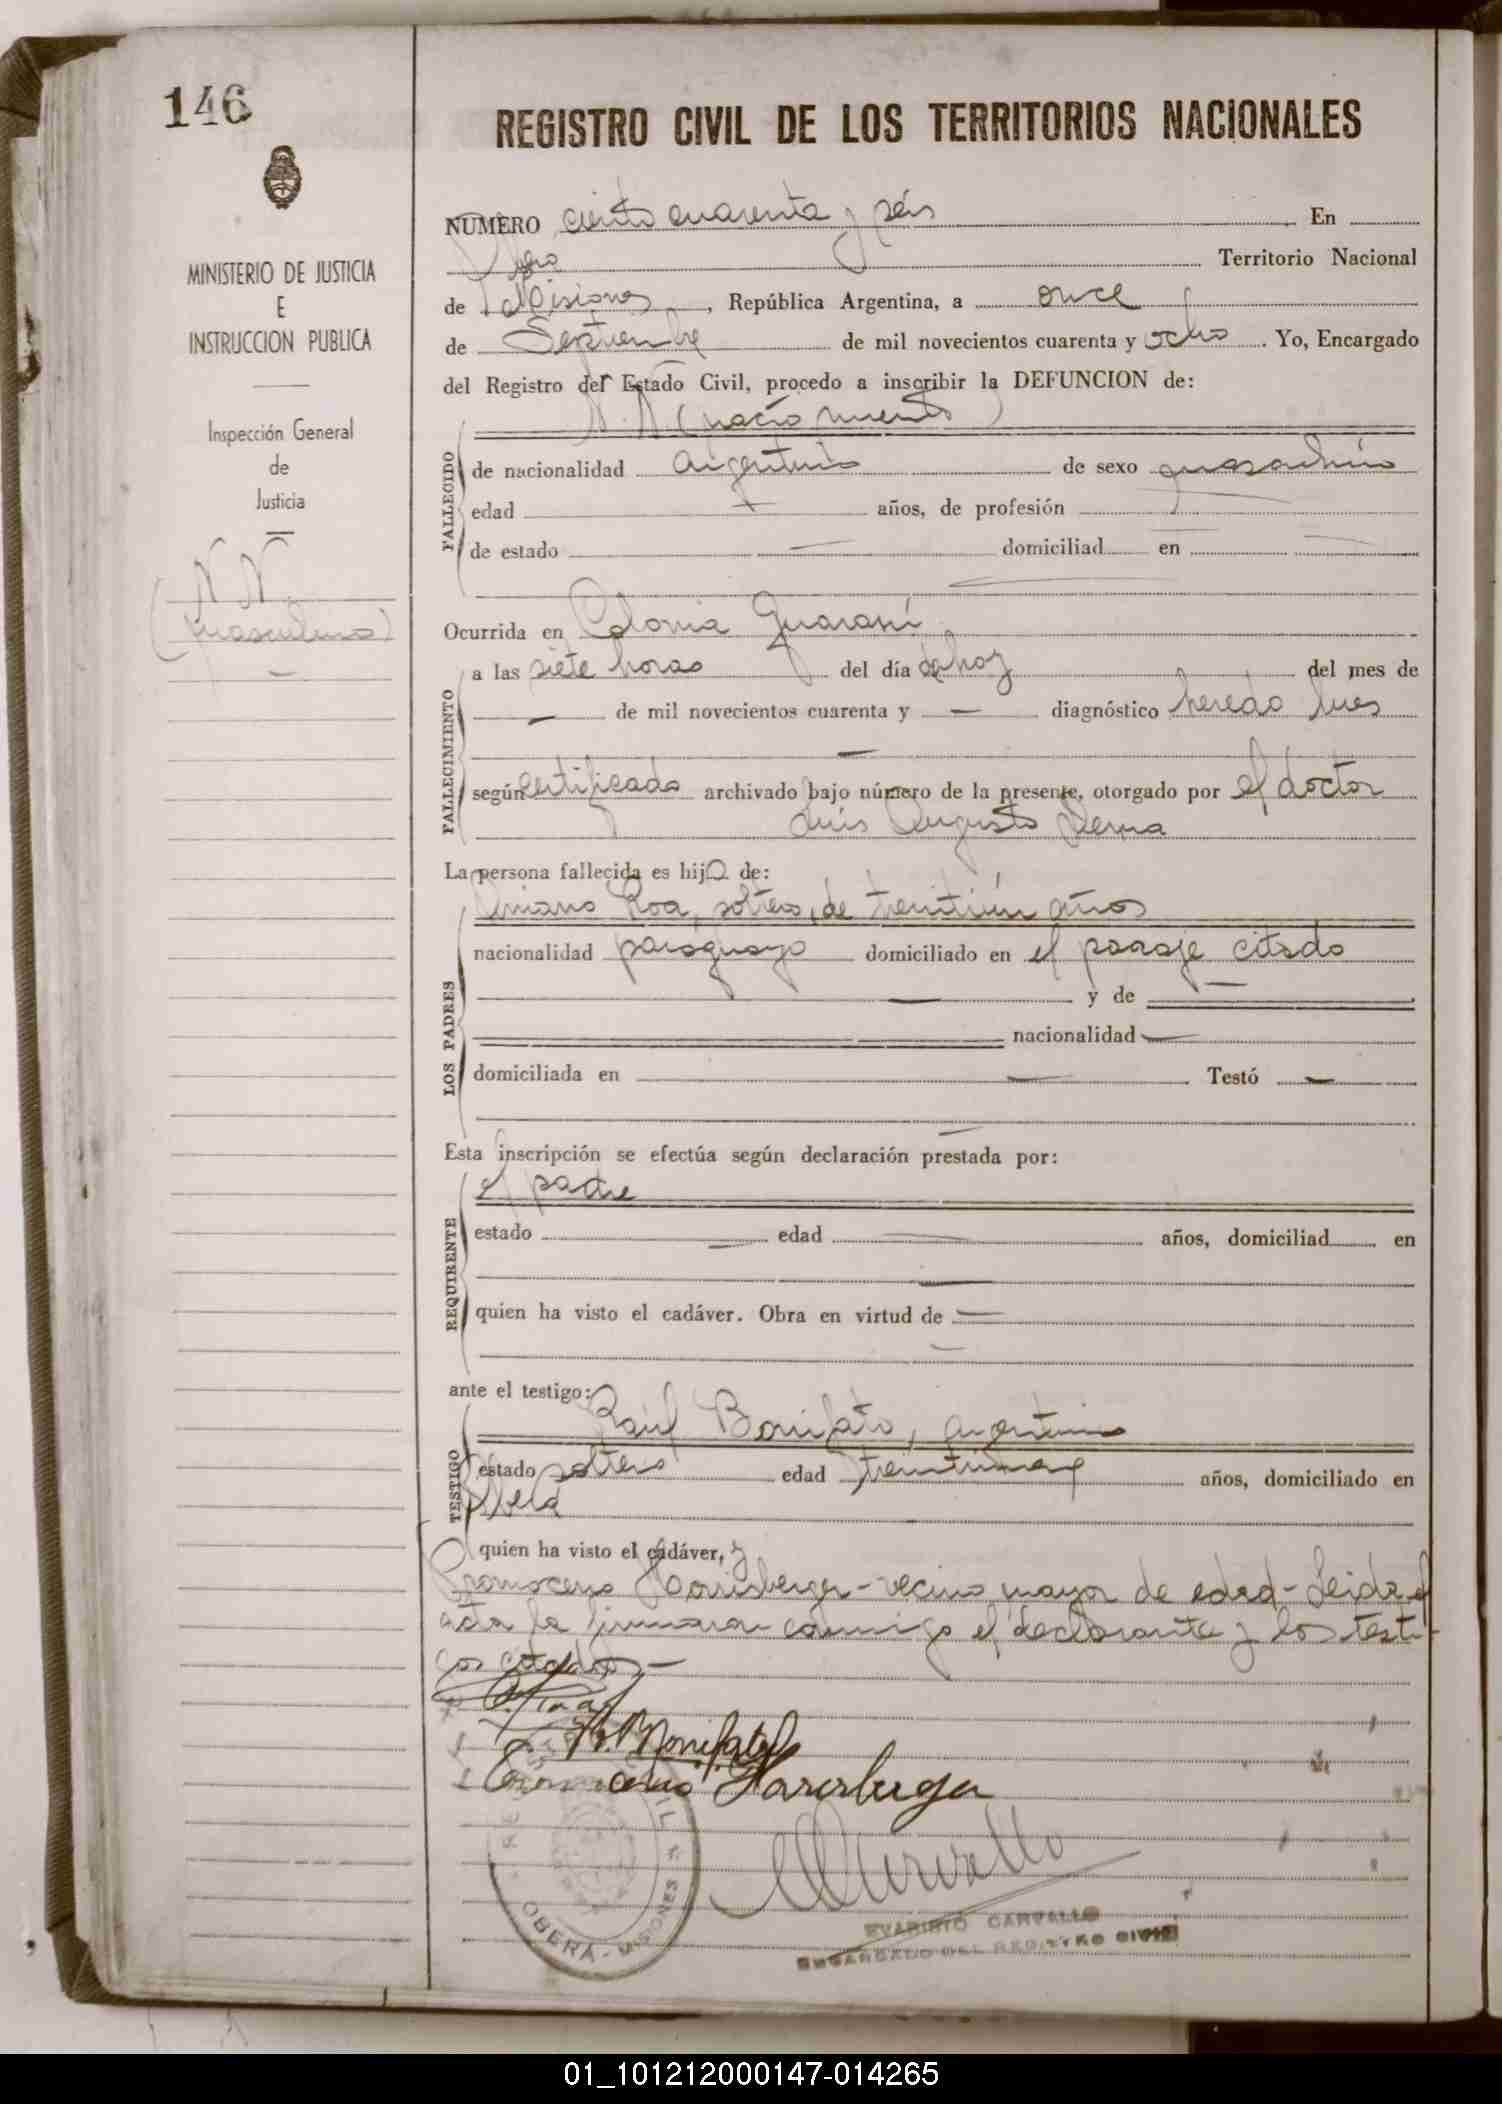 146
REGISTRO CIVIL DE LOS TERRITORIOS NACIONALES
MINISTERIO DE JUSTICIA
E
INSTRUCCION PUBLICA
Inspección General
de
Justicia
N N
(masculino)
NUMERO ciento cuarenta y seis En
Territorio Nacional
de Misiones, República Argentina, a once
de Septiembre de mil novecientos cuarenta y ocho. Yo, Encargado
del Registro del Estado Civil, procedo a inscribir la DEFUNCION de:
N. N (nacio muerto)
FALLECIDO
de nacionalidad argentino de sexo masculino
edad años, de profesión
de estado domiciliad en
Ocurrida en Colonia Guaraní
FALLECIMIENTO
a las siete horas del día de hoy del mes de
— de mil novecientos cuarenta y — diagnóstico heredo lues
—
según certificado archivado bajo número de la presente, otorgado por el doctor
Luis Augusto Derna
La persona fallecida es hijo de:
LOS PADRES
Roa, soltero, de treintiún años
nacionalidad paraguayo domiciliado en el paraje citado
— y de —
nacionalidad —
domiciliada en — Testó —
Esta inscripción se efectúa según declaración prestada por:
REQUIRENTE
el padre
estado — edad — años, domiciliad en
—
quien ha visto el cadáver. Obra en virtud de —
ante el testigo:
TESTIGO
Raúl Bonifato, argentino
estado soltero edad años, domiciliado en
Oberá
quien ha visto el cadáver, y
vecino mayor de edad - Leida el
acta la firmaron conmigo el declarante y los testi-
gos citados —
R. Bonifato
Carvallo
REGISTRO CIVIL
OBERÁ - MISIONES
EVARISTO CARVALLO
ENCARGADO DEL REGISTRO CIVIL
01_101212000147-014265